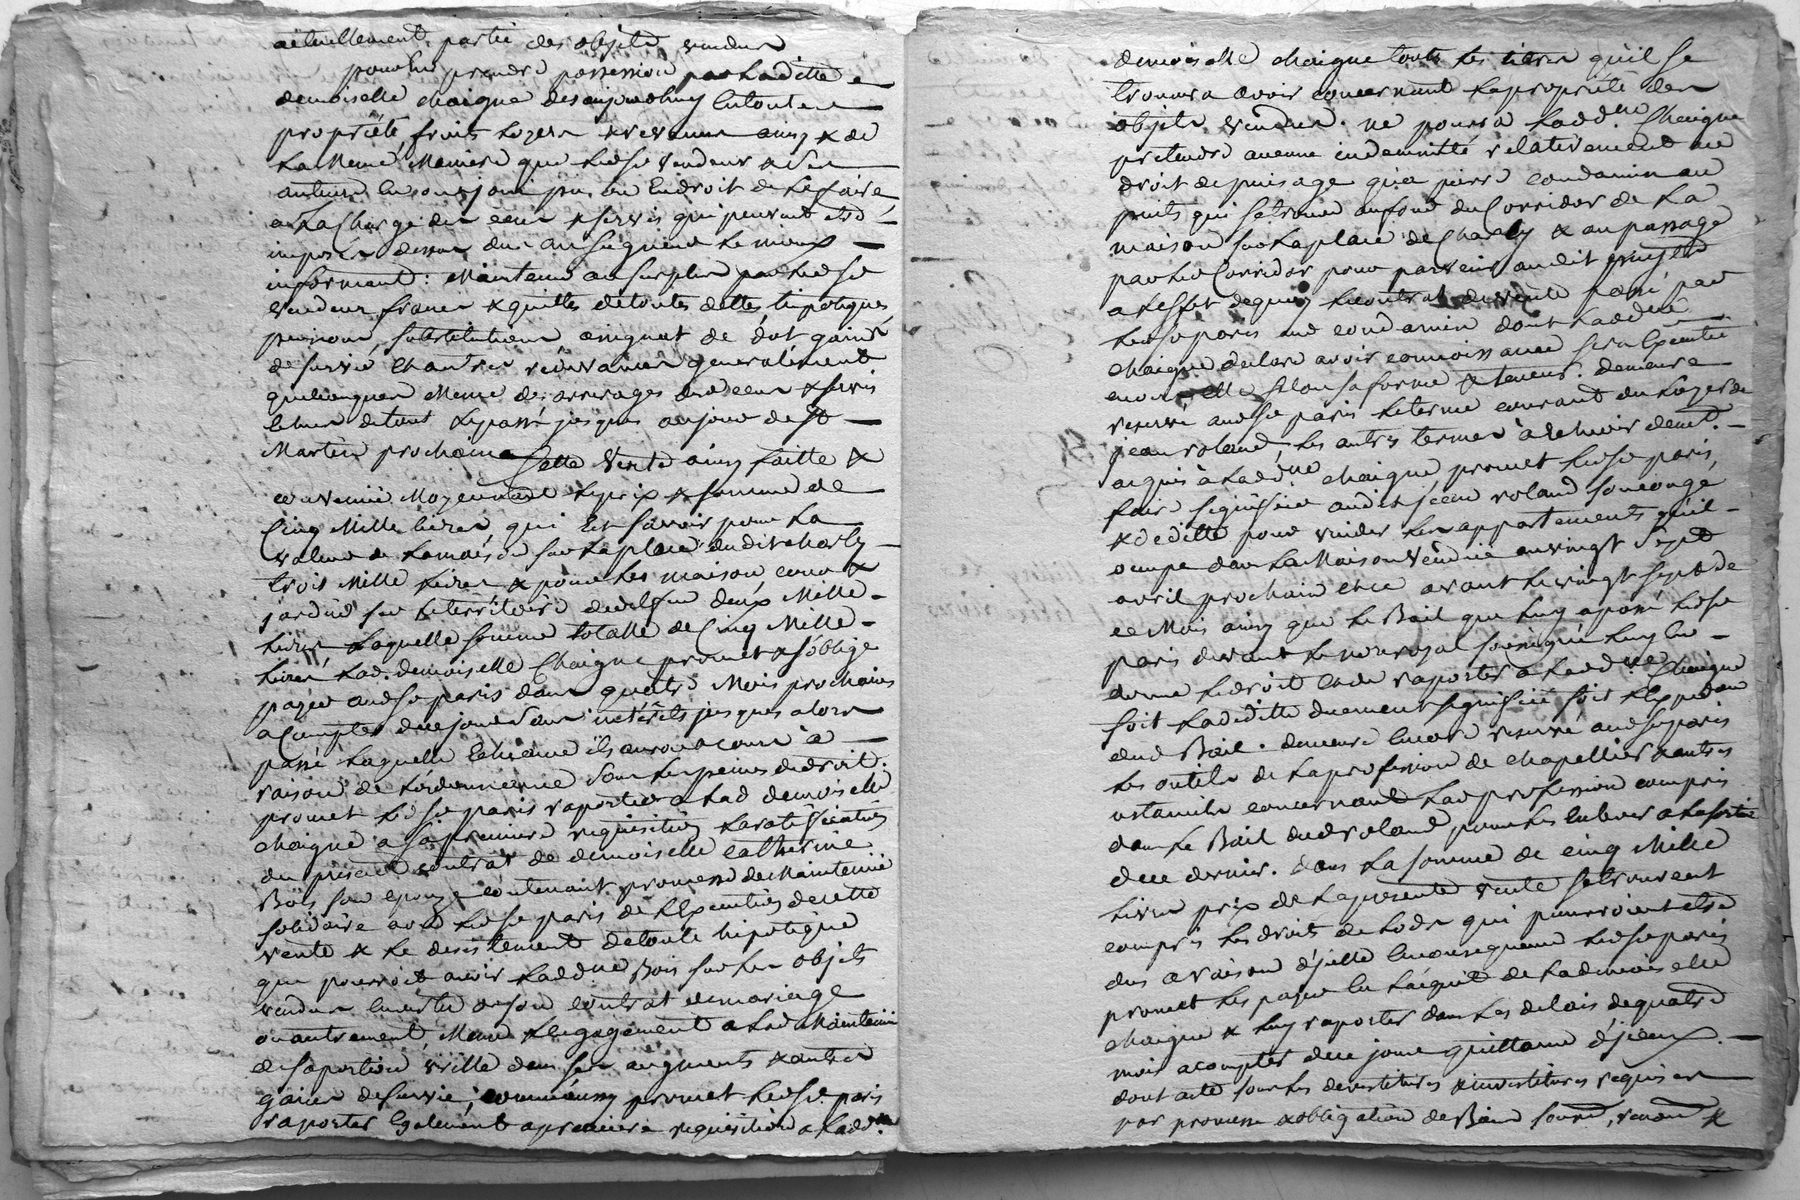 actuellement partie des objets vendus
pour lui prendre possession par laditte
demoiselle chaigne desaujourdhuy entoutte
propriété fruits loyers & revenus ainsy & de
la meme maniere que led sr vendeur & ses
auteurs en ont joui pu ou endroit de le faire
a la charge des cens & servis qui peuvent etre
imposés dessus dus au seigneur le mieux
informant: Maintenus au surplus par led sr
vendeur francs & quittes de toutes dettes hipoteques
pensions, substitutions, assignat de dot gains
de survie chantres generalement
quelconques meme des arrerages desd cens & servis
echus detout lepassé jusques aujour de St
Martin prochain Cette vente ainsy faitte &
convenüe moyennant leprix & somme de
Cinq Mille livres, qui est savoir pour la
valeur de lamaison sur laplace dudit charly
trois mille livres & pour les maison cour &
jardin sur leterritoire deux Mille
livres laquelle somme totalle de Cinq Mille
livres lad. demoiselle Chaigne promet & s'oblige
payer aud sr paris dans quatre Mois prochains
acompter dece jour sans interêts jusques alors
passé laquelle echeance ils auront cours à
raison de l'ordonnance sous les peines de droit.
promet led sr paris raporter a lad demoiselle
chaigne a sa premiere requisition la ratification
du présent contrat de demoiselle catherine
Bois son epouze contenant promesse de maintenüe
solidaire avec led sr paris de l'execution decette
vente & le desistement detoute hipotèque
que pourroit avoir ladd.lle Bois sur les objets
vendus envertu deson contrat de mariage
ou autrement, Meme l'engagement a lad Maintenüe
de saportion virille dans ses augments & autres
gains de survie, comme aussy promet led sr paris
raporter egalement apremiere requisition a ladd.lle
demoiselle chaigne touts les titres qu'il se
trouvera avoir concernant lapropriété des
objets vendus. ne pourra ladd.lle Chaigne
pretendre aucune indemnité relativement au
droit de puisage qu'a pierre condamin au
puits qui setrouve aufond du Corridor de la
maison sur laplace de Charly & au passage
par led Corridor pour parvenir audit puits
a l'effet dequoy lecontrat de vente passé par
led sr paris aud condamin dont ladd.lle
chaigne declare avoir connoissance sera executé
selon sa forme & teneur. demeure
reservé aud sr paris leterme courant du loyer de
jean roland, les autres termes à echevoir demt.
acquis à ladd.lle chaigne promet led sr paris,
faire signiffier audit jean roland son congé
& deditte pour vuider les appartements qu'il
occupe dans la Maison vendüe auvingt sept
avril prochain et ce avant levingt sept de
ce Mois ainsy que le Bail que luy a passé led sr
paris devant le not royal soussigné luy en
donne ledroit et de raporter a ladd.lle Chaigne
soit la deditte duement signifiée soit l'expedon
dud Bail. demeure encore reservé aud sr paris
les outils de laprofession de chapellier & autres
ustancils concernant lad profession compris
dans le Bail dud roland pour les enlever a lasortie
de ce dernier. dans la somme de cinq Mille
livres prix de lapresente vente setrouvent
compris les droits de lods qui pourroient etre
dus araison d'jcelle enconsequence led sr paris
promet les payer en l'acquit de lad demoiselle
chaigne & luy raporter dans les delais de quatre
mois acompter dece jour quittance d'jceux.
dont acte sous les devestitures & investitures requises
par promesse & obligation de Biens soumn, renonn &